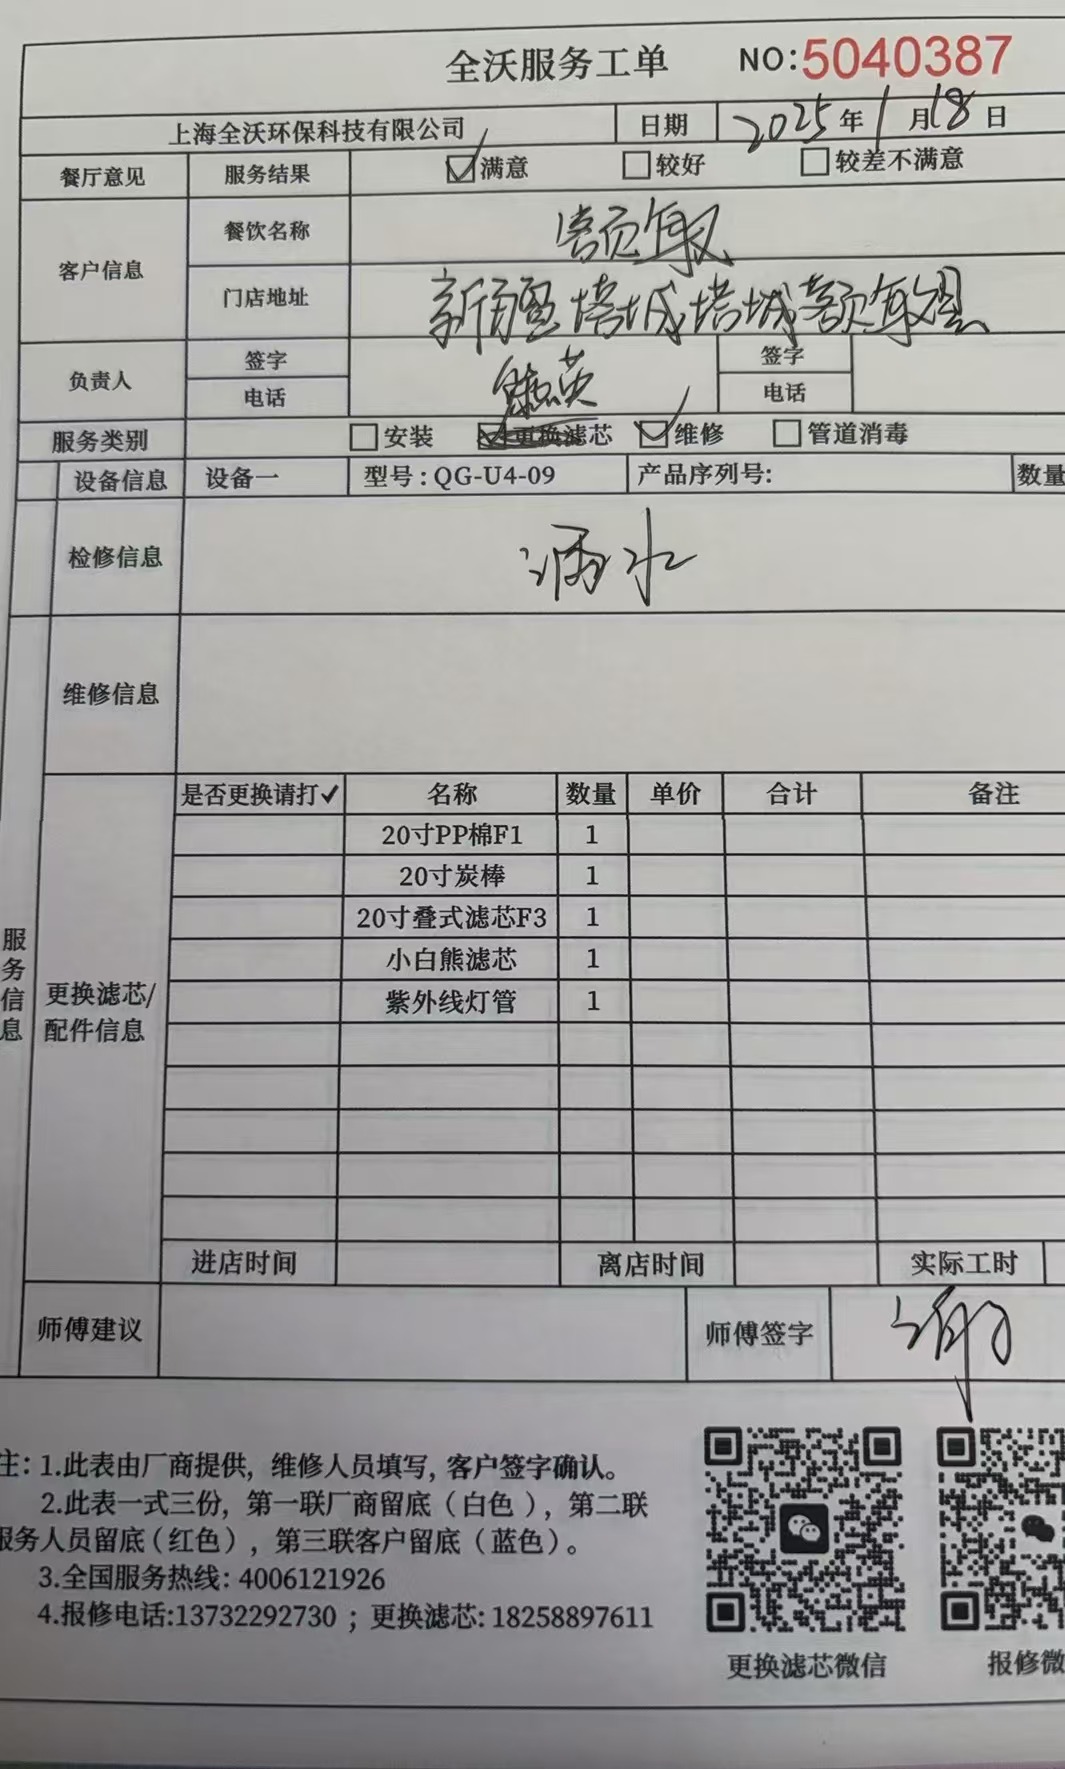 全沃服务工单 NO:5040387
上海全沃环保科技有限公司 日期 2025年1月18日
餐厅意见 服务结果 ☑满意 ☐较好 ☐较差不满意
客户信息 餐饮名称 额敏
门店地址 新疆塔城塔城额敏县
负责人 签字 英 签字
电话 电话
服务类别 ☐安装 更换滤芯 ☑维修 ☐管道消毒
设备信息 设备一 型号:QG-U4-09 产品序列号: 数量
检修信息 漏水
维修信息
服务信息
更换滤芯/
配件信息
是否更换请打✓ 名称 数量 单价 合计 备注
20寸PP棉F1 1
20寸炭棒 1
20寸叠式滤芯F3 1
小白熊滤芯 1
紫外线灯管 1
进店时间 离店时间 实际工时
师傅建议 师傅签字
注:1.此表由厂商提供, 维修人员填写, 客户签字确认。
2.此表一式三份, 第一联厂商留底(白色), 第二联
服务人员留底(红色), 第三联客户留底(蓝色)。
3.全国服务热线: 4006121926
4.报修电话:13732292730 ; 更换滤芯: 18258897611
更换滤芯微信 报修微